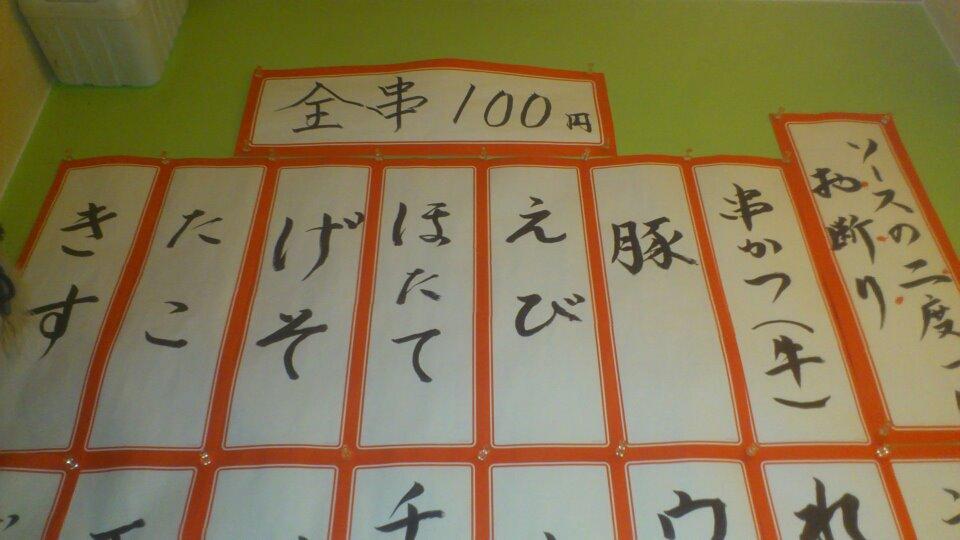 全串100円
ソースの二度
お断り
串かつ(牛)
豚
えび
ほたて
げそ
たこ
きす
れ
ウ
チ